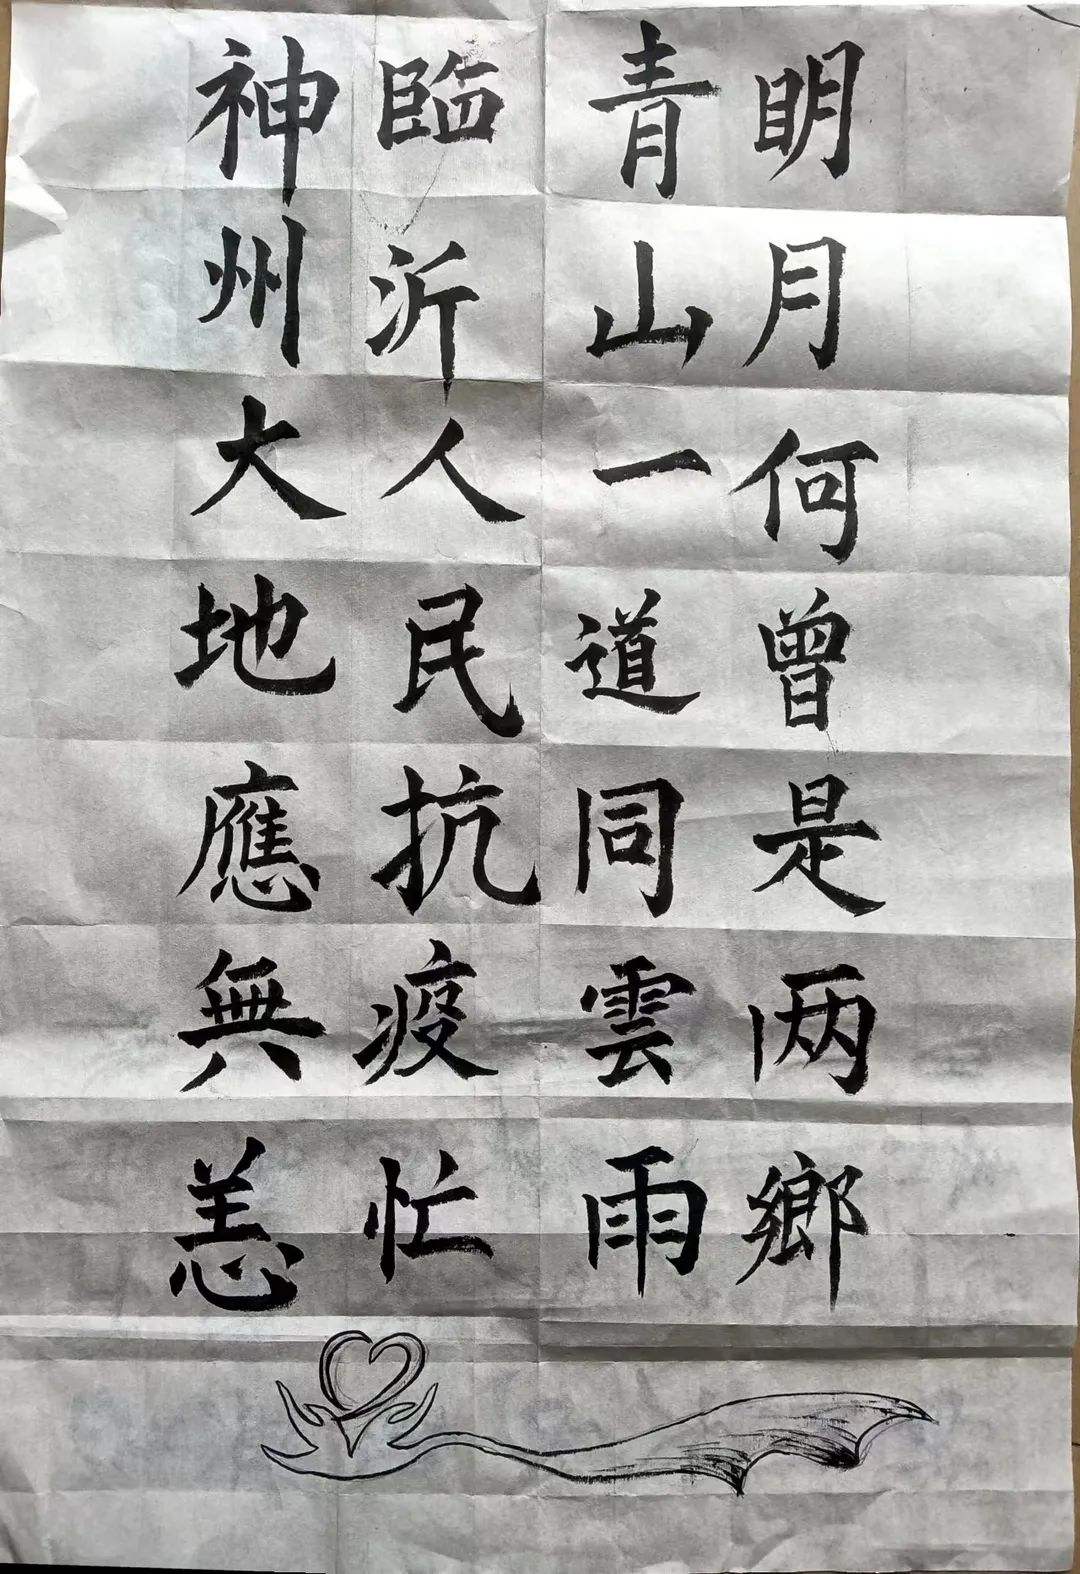 明月何曾是两鄉
青山一道同雲雨
臨沂人民抗疫忙
神州大地應無恙